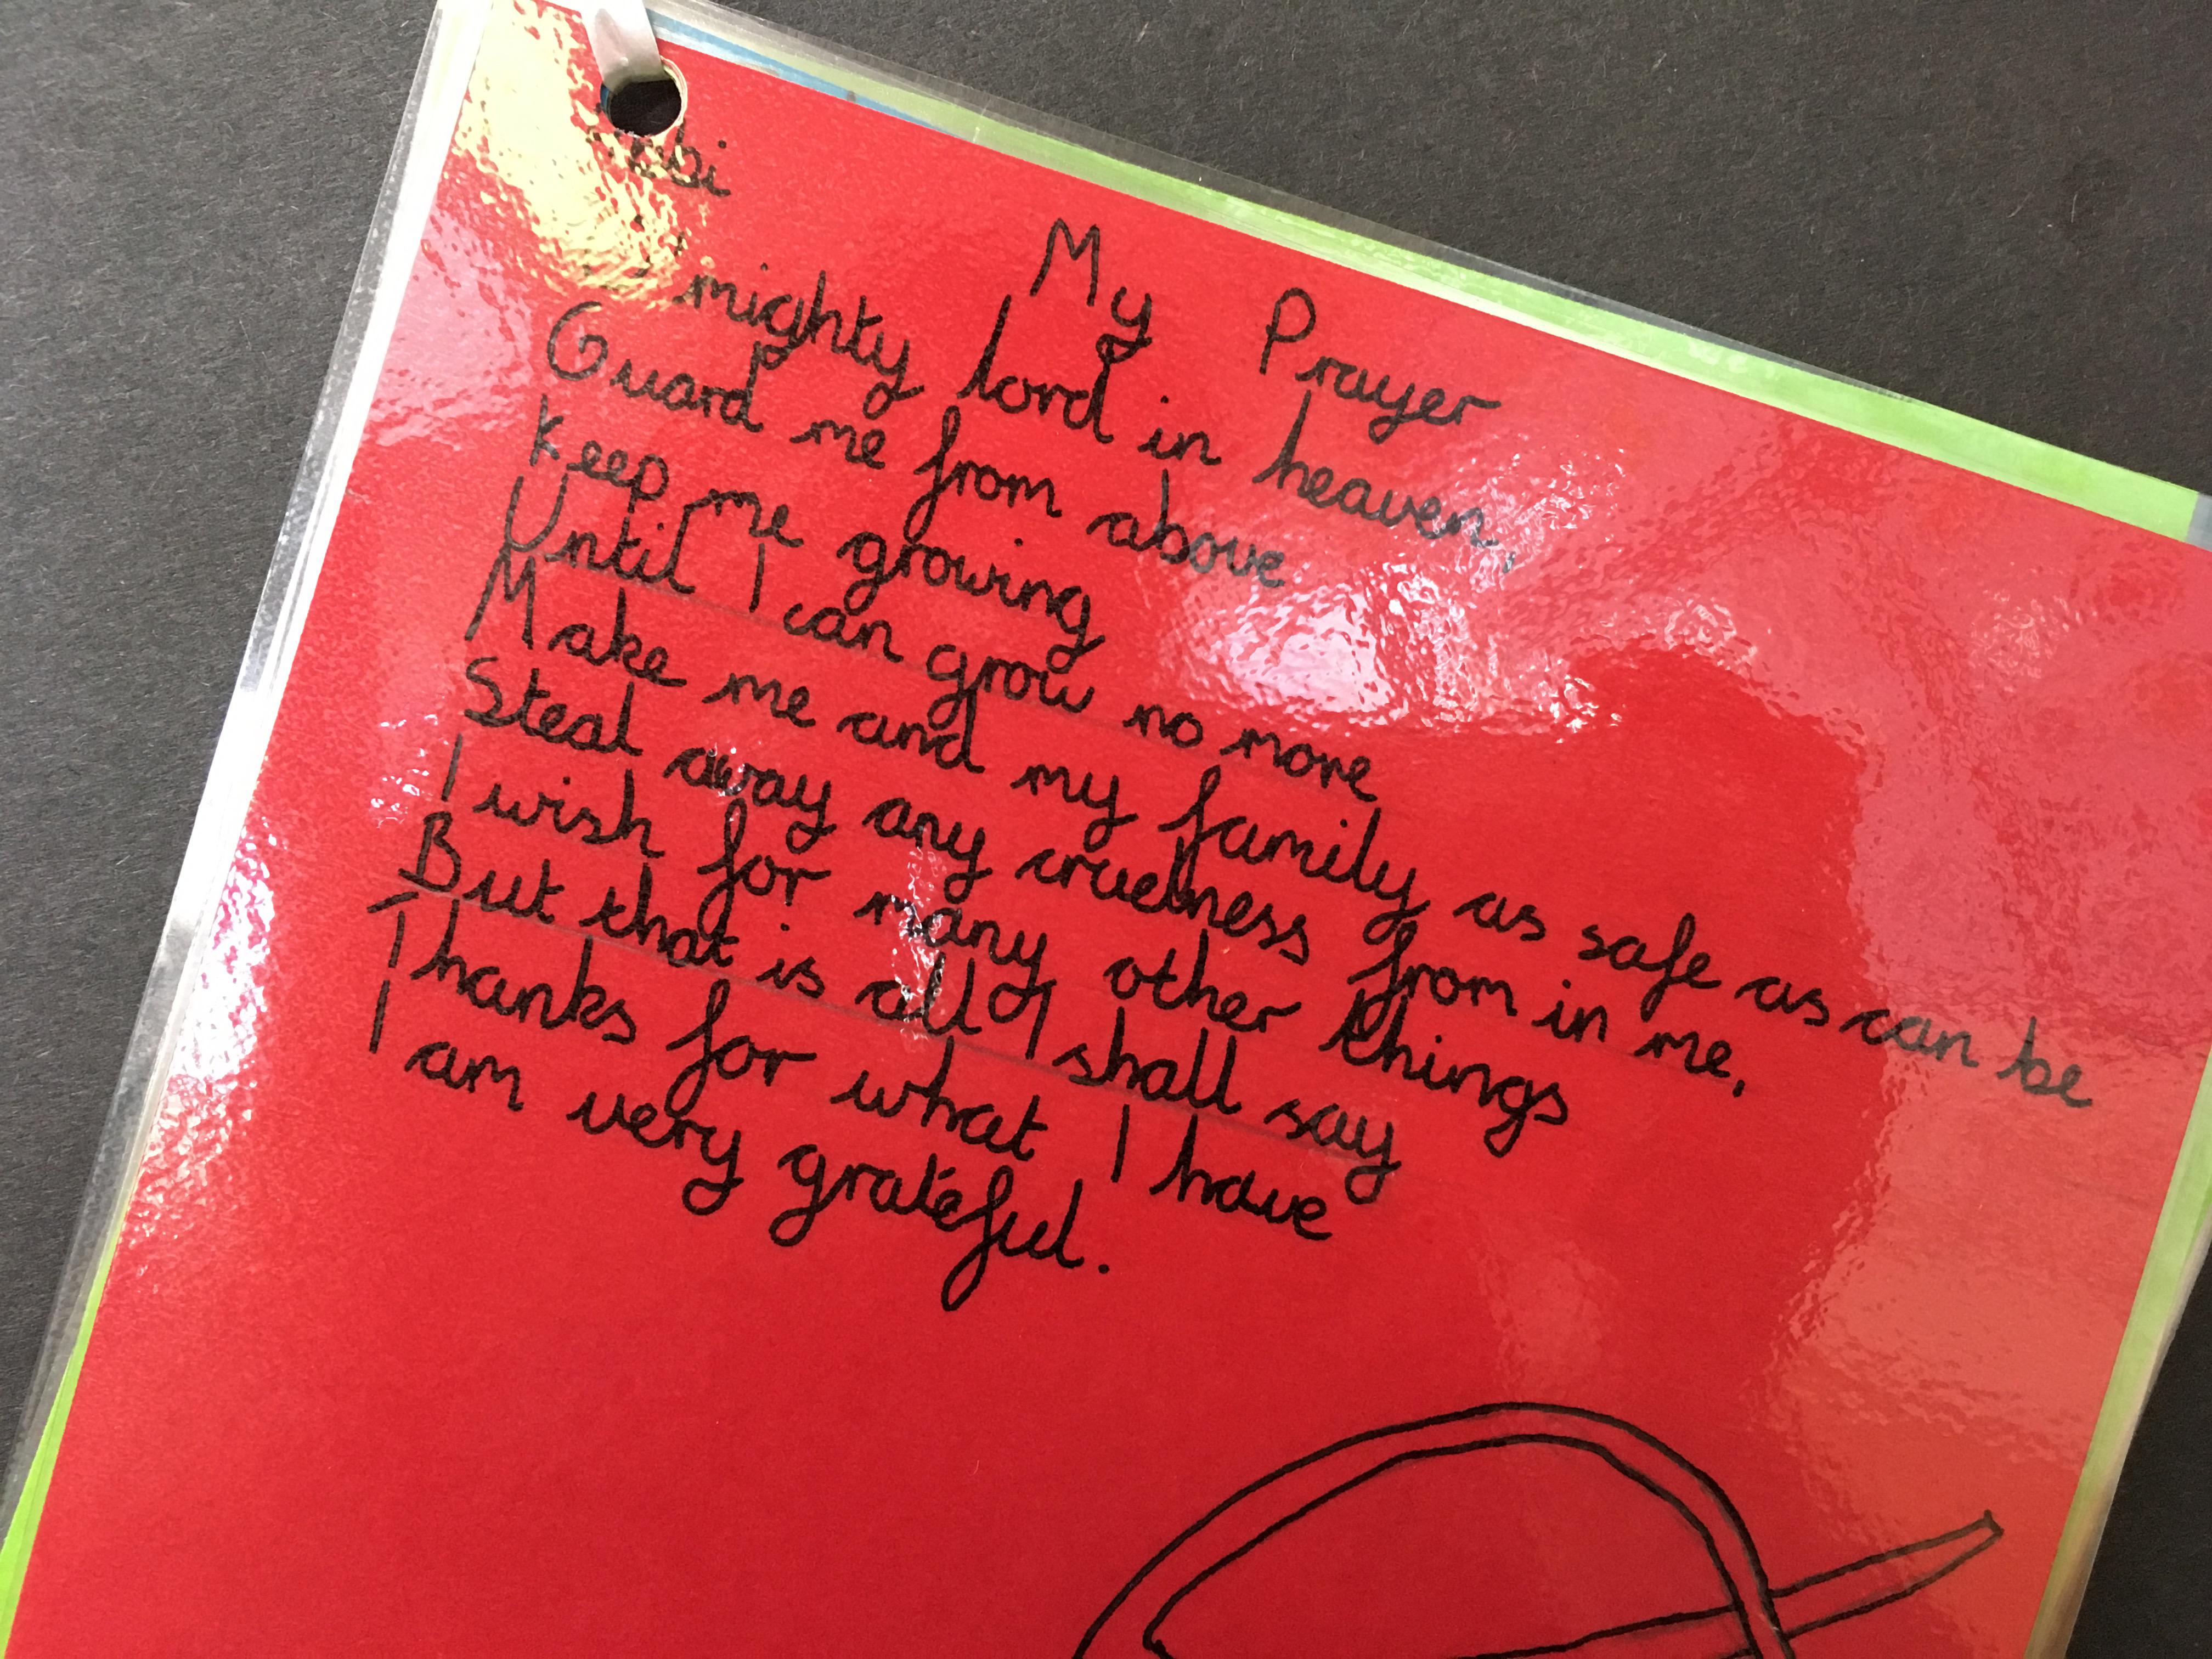 My Prayer
mighty lord in heaven,
Guard me from above
Keep me growing
Until I can grow no more
Make me and my family as safe as can be
Steal away any cruelness from in me,
I wish for many other things
But that is all I shall say
Thanks for what I have
I am very grateful.